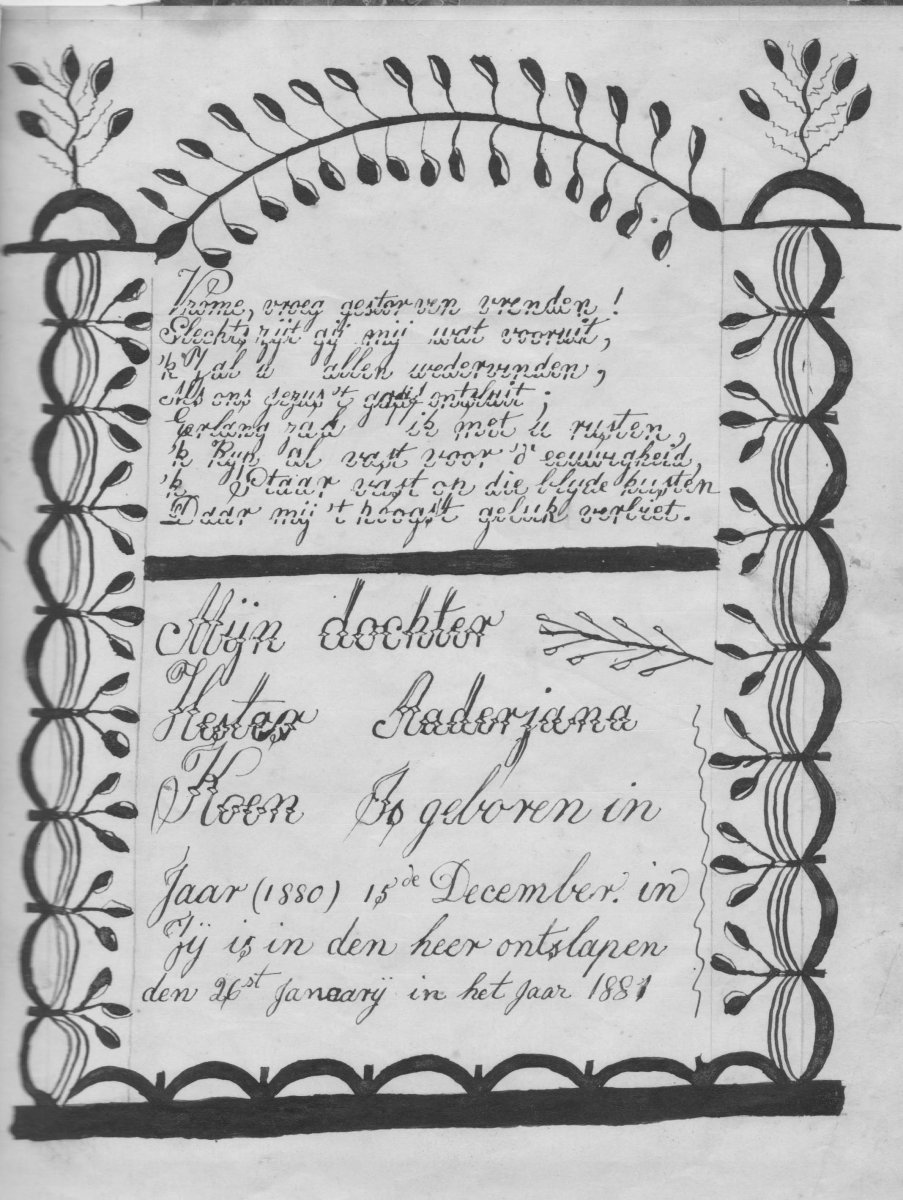 Vrome, vroeg gestorven vrenden!
Slechts zijt gij mij wat vooruit,
'k Zal u allen wedervinden,
Als ons Jezus 't ontsluit;
Eerlang zad ik met u rusten,
'k Kijk al vast voor 'd' eeuwigheid,
'k Staar vast op die blyde kusten
Daar mij 't hoogst geluk verbiet.
Mijn dochter
Hester Aaderjana
Koen Is geboren in
Jaar (1880) 15de December. in
Zÿ is in den heer ontslapen
den 26st Januarÿ in het Jaar 1881